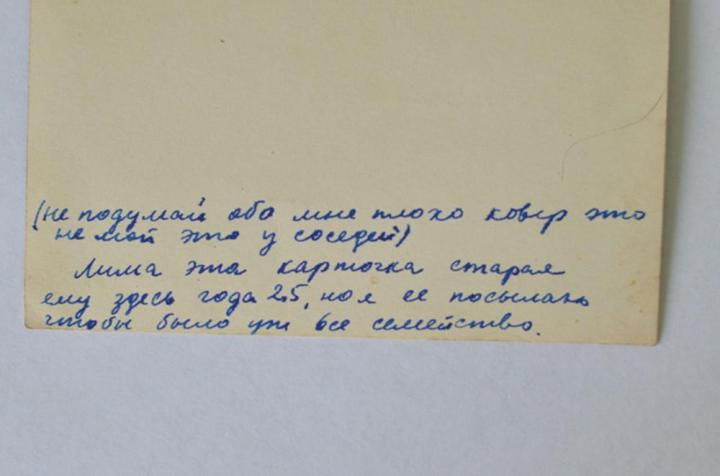 (не подумай обо мне плохо ковер это
не мой это у соседей)
Лима эта карточка старая
ему здесь года 2.5, но я ее посылаю
чтобы было уж все семейство.